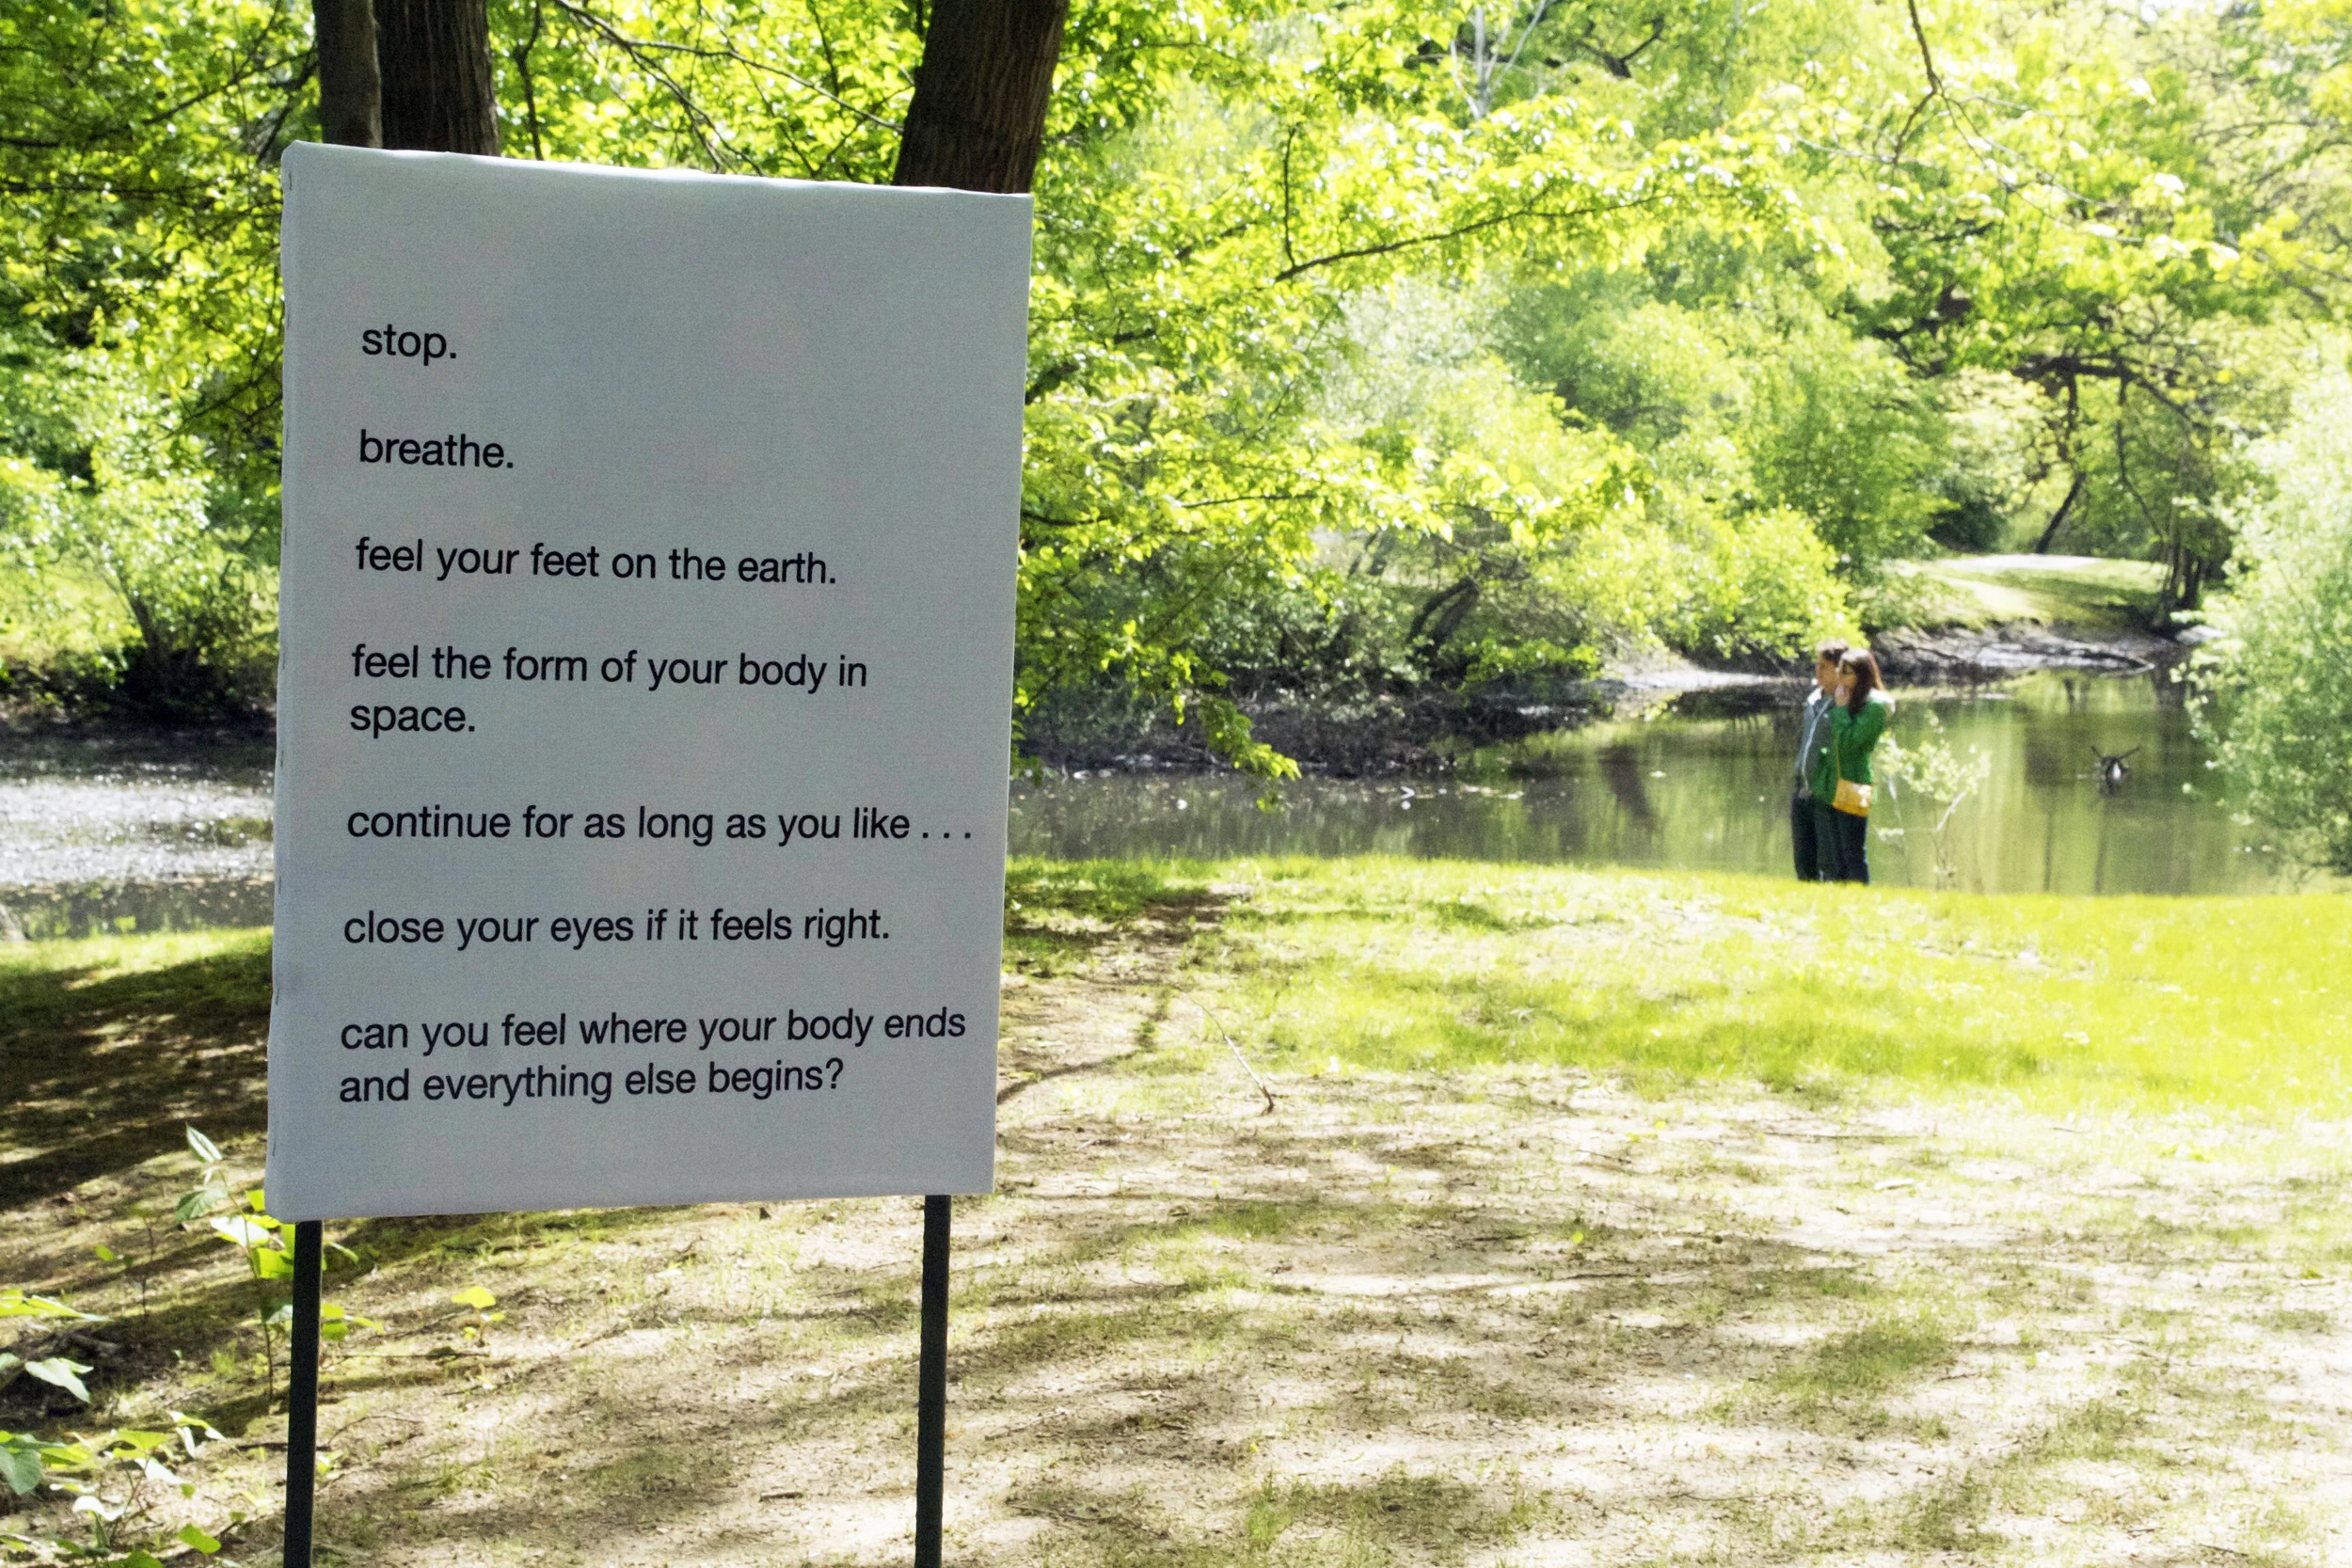 stop.
breathe.
feel your feet on the earth.
feel the form of your body in
space.
continue for as long as you like . . .
close your eyes if it feels right.
can you feel where your body ends
and everything else begins?